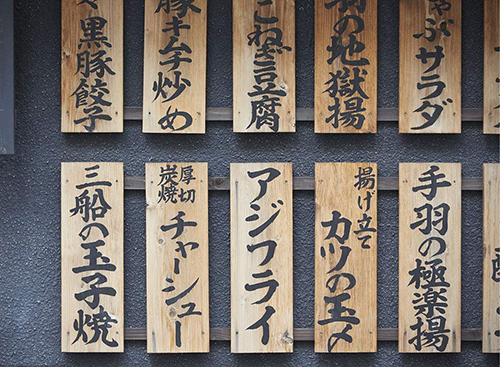 ぶサラダ
の地獄揚
こねぎ豆腐
豚キムチ炒め
黒豚餃子
手羽の極楽揚
揚げ立て
カツの玉〆
アジフライ
厚切
炭焼
チャーシュー
三船の玉子焼